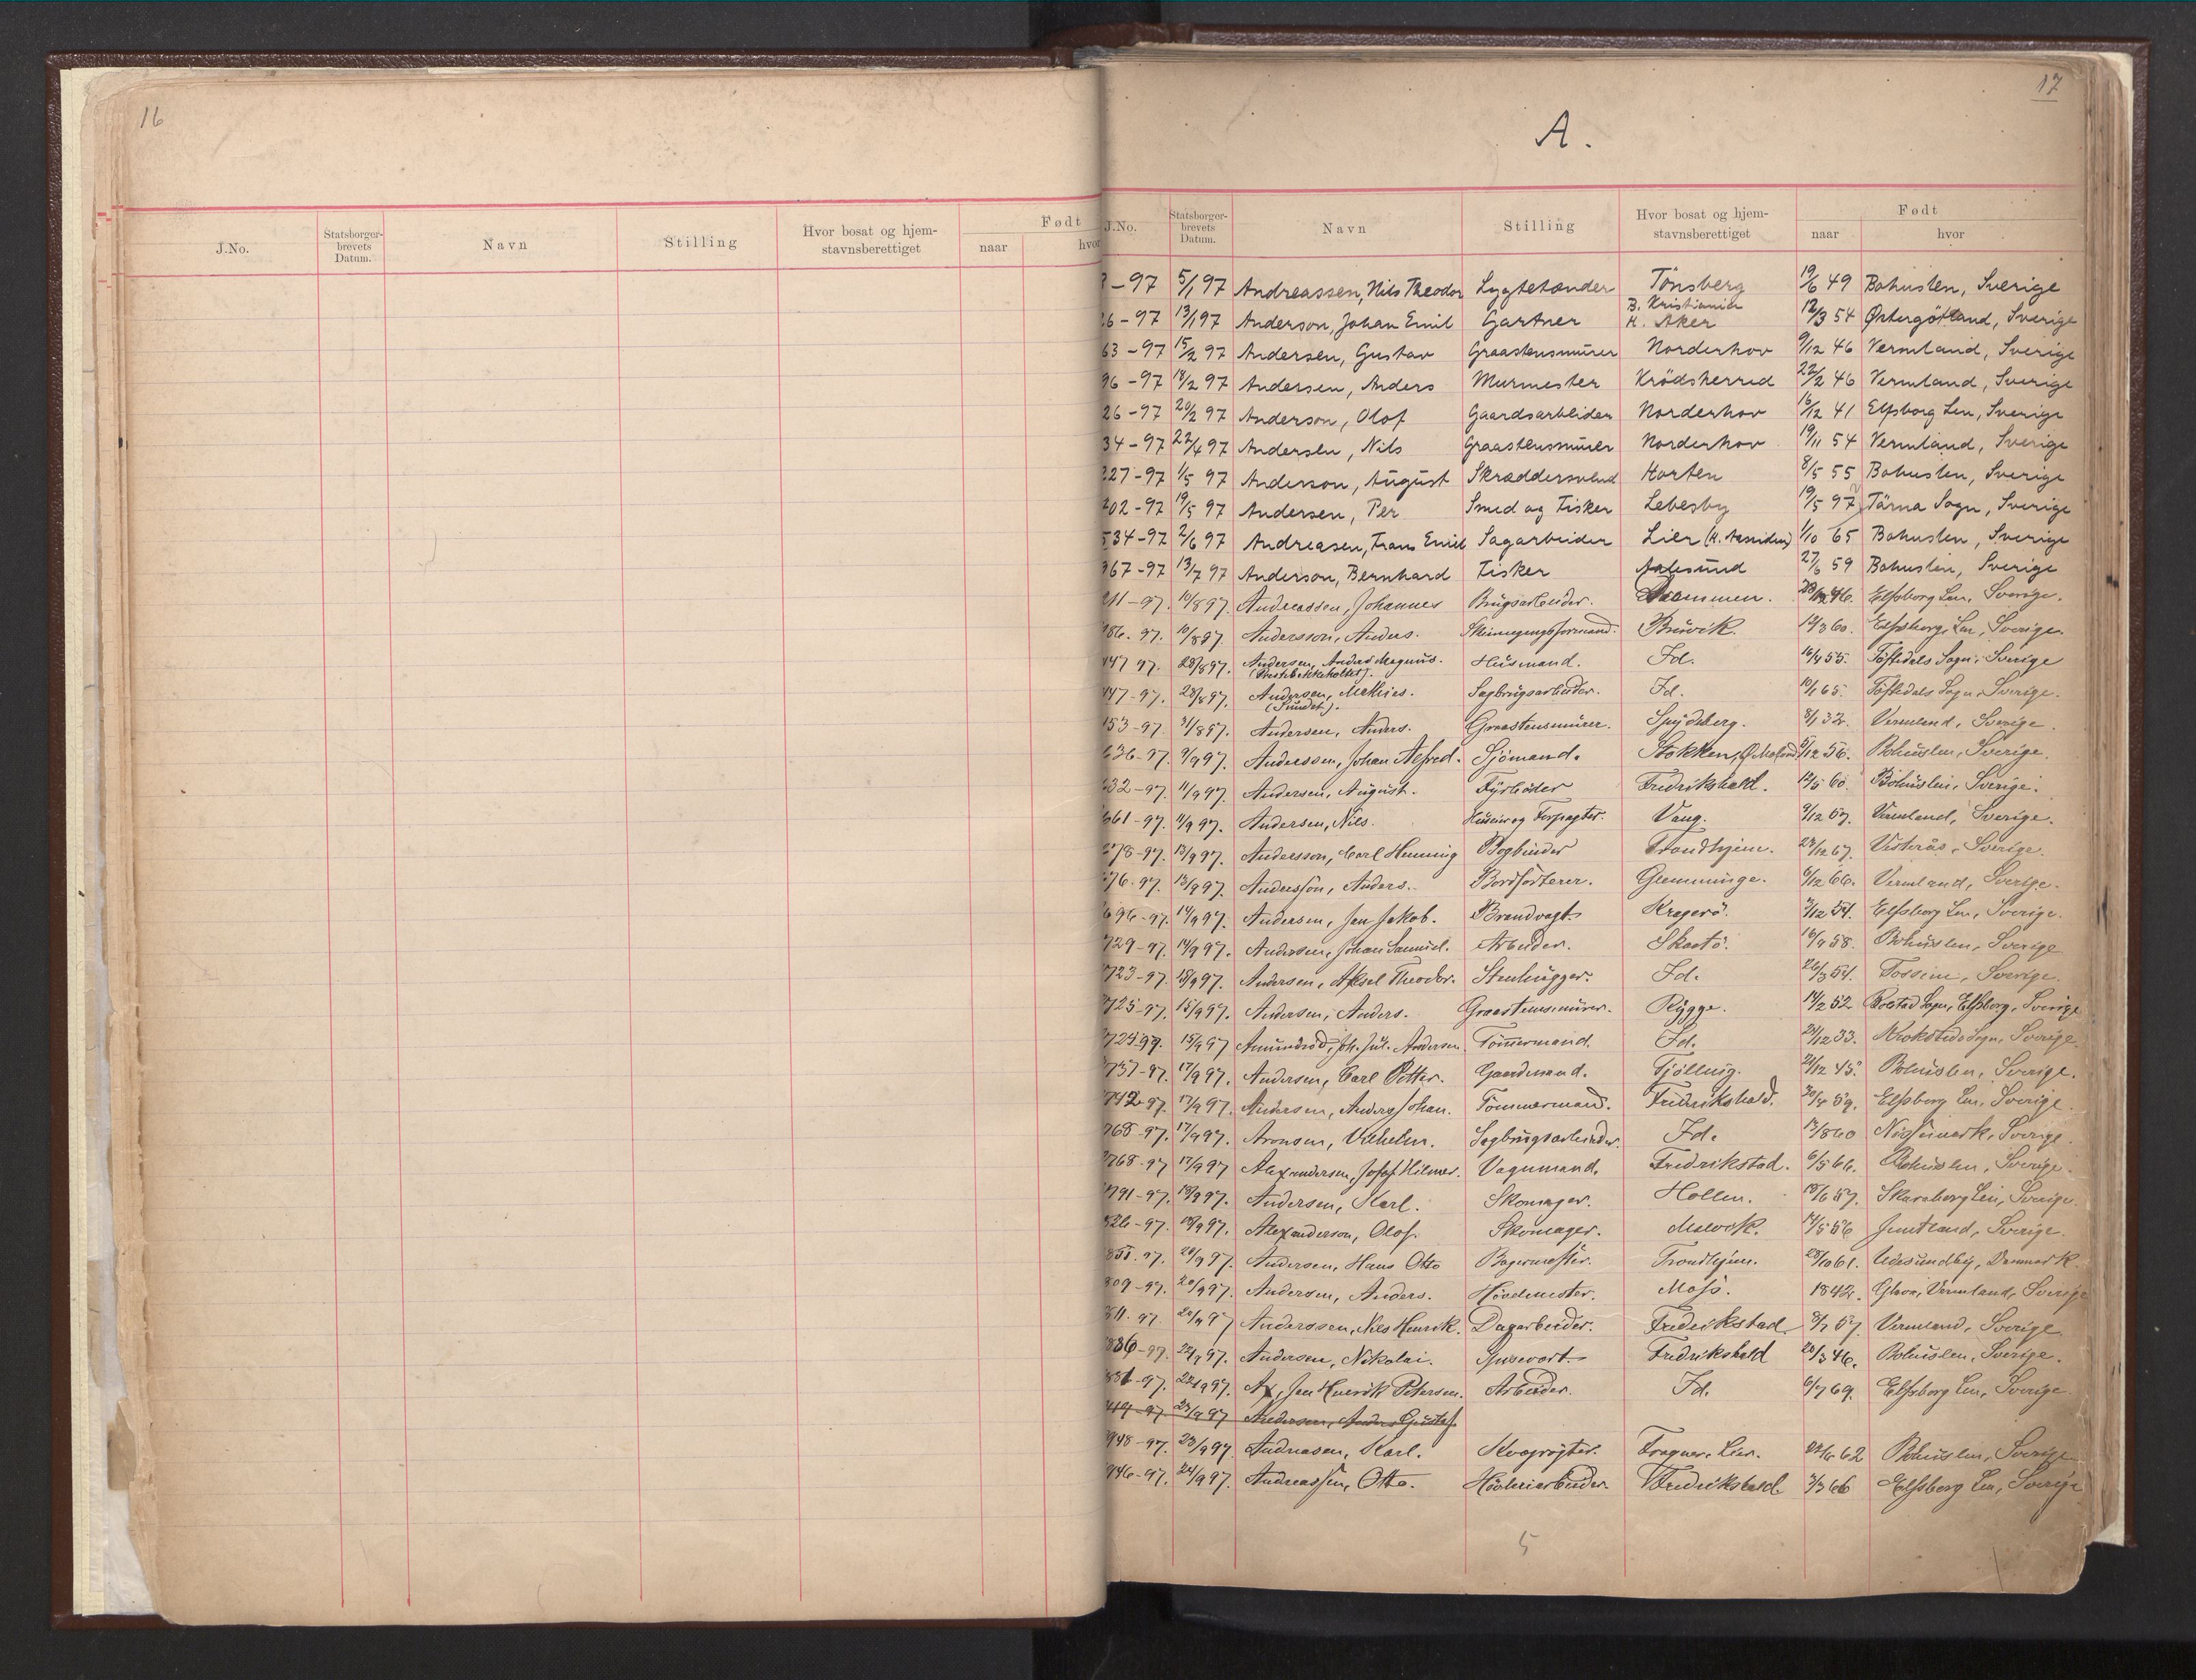 16
J.No.
Statsborger-
brevets
Datum.
Navn
Stilling
Hvor bosat og hjem-
stavnsberettiget
Født
naar
hvor
17
A.
J.No.
Statsborger-
brevets
Datum.
Navn
Stilling
Hvor bosat og hjem-
stavnsberettiget
Født
naar
hvor
-97 5/1 97 Andreassen, Nils Theodor Lygtetænder Tönsberg 19/6 49 Bohuslen, Sverige
26-97 13/1 97 Anderson, Johan Emil Gartner B. Kristiania H. Aker 12/3 54 Östergötland, Sverige
63-97 15/2 97 Andersen, Gustav Graastensmurer Norderhov 9/12 46 Vermland, Sverige
96-97 18/2 97 Andersen, Anders Murmester Krödsherred 22/2 46 Vermland, Sverige
26-97 20/2 97 Anderson, Olof Gaardsarbeider Norderhov 16/12 41 Elfsborg Len, Sverige
34-97 22/4 97 Andersen, Nils Graastensmurer Norderhov 19/11 54 Vermland, Sverige
227-97 1/5 97 Anderson, August Skræddersvend Horten 8/5 55 Bohuslen, Sverige
202-97 19/5 97 Andersen, Per Smed og Fisker Lebesby 19/5 97 Tärna Sogn, Sverige
534-97 2/6 97 Andreasen, Frans Emil Sagarbeider Lier (H. Aassiden) 1/10 65 Bohuslen, Sverige
967-97 13/7 97 Anderson, Bernhard Fisker Aalesund 27/6 59 Bohuslen, Sverige
211-97. 10/8 97. Andreassen, Johannes Brugsarbeider. Drammen. 46. Elfsborg Len, Sverige.
186-97. 10/8 97. Andersson, Anders. Skinnegangsformand. Bruvik. 12/3 60. Elfsborg Len, Sverige.
447 97. 28/8 97. Andersen, Anders Magnus. Husmand. Id. 16/4 55. Töftedals Sogn, Sverige
(Prestebakkeholtet).
447-97. 28/8 97. Andersen, Mathias. Sagbrugsarbeider. Id. 10/1 65. Töftedals Sogn, Sverige.
(Sundet).
153-97. 31/8 97. Andersen, Anders. Graastensmurer. Spydeberg. 8/1 32. Vermland, Sverige.
636-97. 9/9 97. Anderssen, Johan Alfred. Sjömand. Stokken, Ø. Moland 5/12 56. Bohuslen, Sverige.
632-97. 11/9 97. Andersen, August. Fyrböder Fredrikshald. 14/5 60. Bohuslen, Sverige.
661-97. 11/9 97. Andersen, Nils. Husmir og Forpagter. Vang. 9/12 57. Vermland, Sverige.
278-97. 13/9 97. Andersson, Carl Henning Bogbinder Trondhjem. 23/12 67. Vesterås, Sverige.
276-97. 13/9 97. Andersson, Anders. Bordsorterer. Glemminge. 6/12 66. Vermland, Sverige.
696-97. 14/9 97. Andersen, Jan Jakob. Brandvagt. Kragerö. 3/12 54. Elfsborg Len, Sverige.
729-97. 14/9 97. Andersen, Johan Samuel. Arbeider. Skaatö. 16/9 58. Bohuslen, Sverige
723-97. 15/9 97. Andersen, Aksel Theodor. Stenhugger. Id. 26/3 54. Fossum, Sverige.
725-97. 15/9 97. Andersen, Anders. Graastensmurer. Rygge. 14/2 52. Sogn, Elfsborg, Sverige
724-97. 15/9 97 Amundröd, Joh. Jul. Andersen. Tömmermand. Id. 21/12 33. Krokstads Sogn, Sverige.
737-97. 17/9 97. Andersen, Carl Petter. Gaardmand. Tjölling. 24/12 45. Bohuslen, Sverige.
742-97. 17/9 97. Andersen, Anders Johan. Tömmermand. Fredrikshald. 30/4 59. Elfsborg Len, Sverige.
768-97. 17/9 97. Aronsen, Vilhelm. Sagbrugsarbeider. Id. 13/8 60 Nössemark, Sverige.
768-97 17/9 97 Alexandersen, Josef Hilmer. Vognmand. Fredrikstad. 6/5 66. Bohuslen, Sverige.
791-97. 18/9 97. Andersen, Karl. Skomager. Hollen. 18/6 57. Skaraborg Len, Sverige.
826-97. 18/9 97. Alexanderson, Olof. Skomager. Malvik. 14/5 56 Jemtland, Sverige.
855-97. 20/9 97. Andersen, Hans Otto Bagermester. Trondhjem. 28/10 61. Udesundby, Danmark.
809-97. 20/9 97. Andersen, Anders. Hövelmester. Moss. 1842. Glava, Vermland, Sverige
811. 97. 20/9 97 Anderssen, Nils Henrik. Dagarbeider. Fredrikstad. 8/7 57. Vermland, Sverige.
836-97. 22/9 97. Andersen, Nikolai. Fredrikshald 20/3 46. Bohuslen, Sverige.
831-97. 22/9 97. Ax, Jan Henrik Petersen. Arbeider. Id. 6/7 69. Elfsborg Len, Sverige.
949-97. 23/9 97 Andersen, Anders Gustaf.
948-97. 23/9 97. Andreasen, Karl. Kvægrögter. Frogner, Lier. 24/6 62 Bohuslen, Sverige
946-97. 24/9 97. Andreassen, Otto. Hövleriarbeider. Fredrikshald 3/3 66 Elfsborg Len, Sverige
5